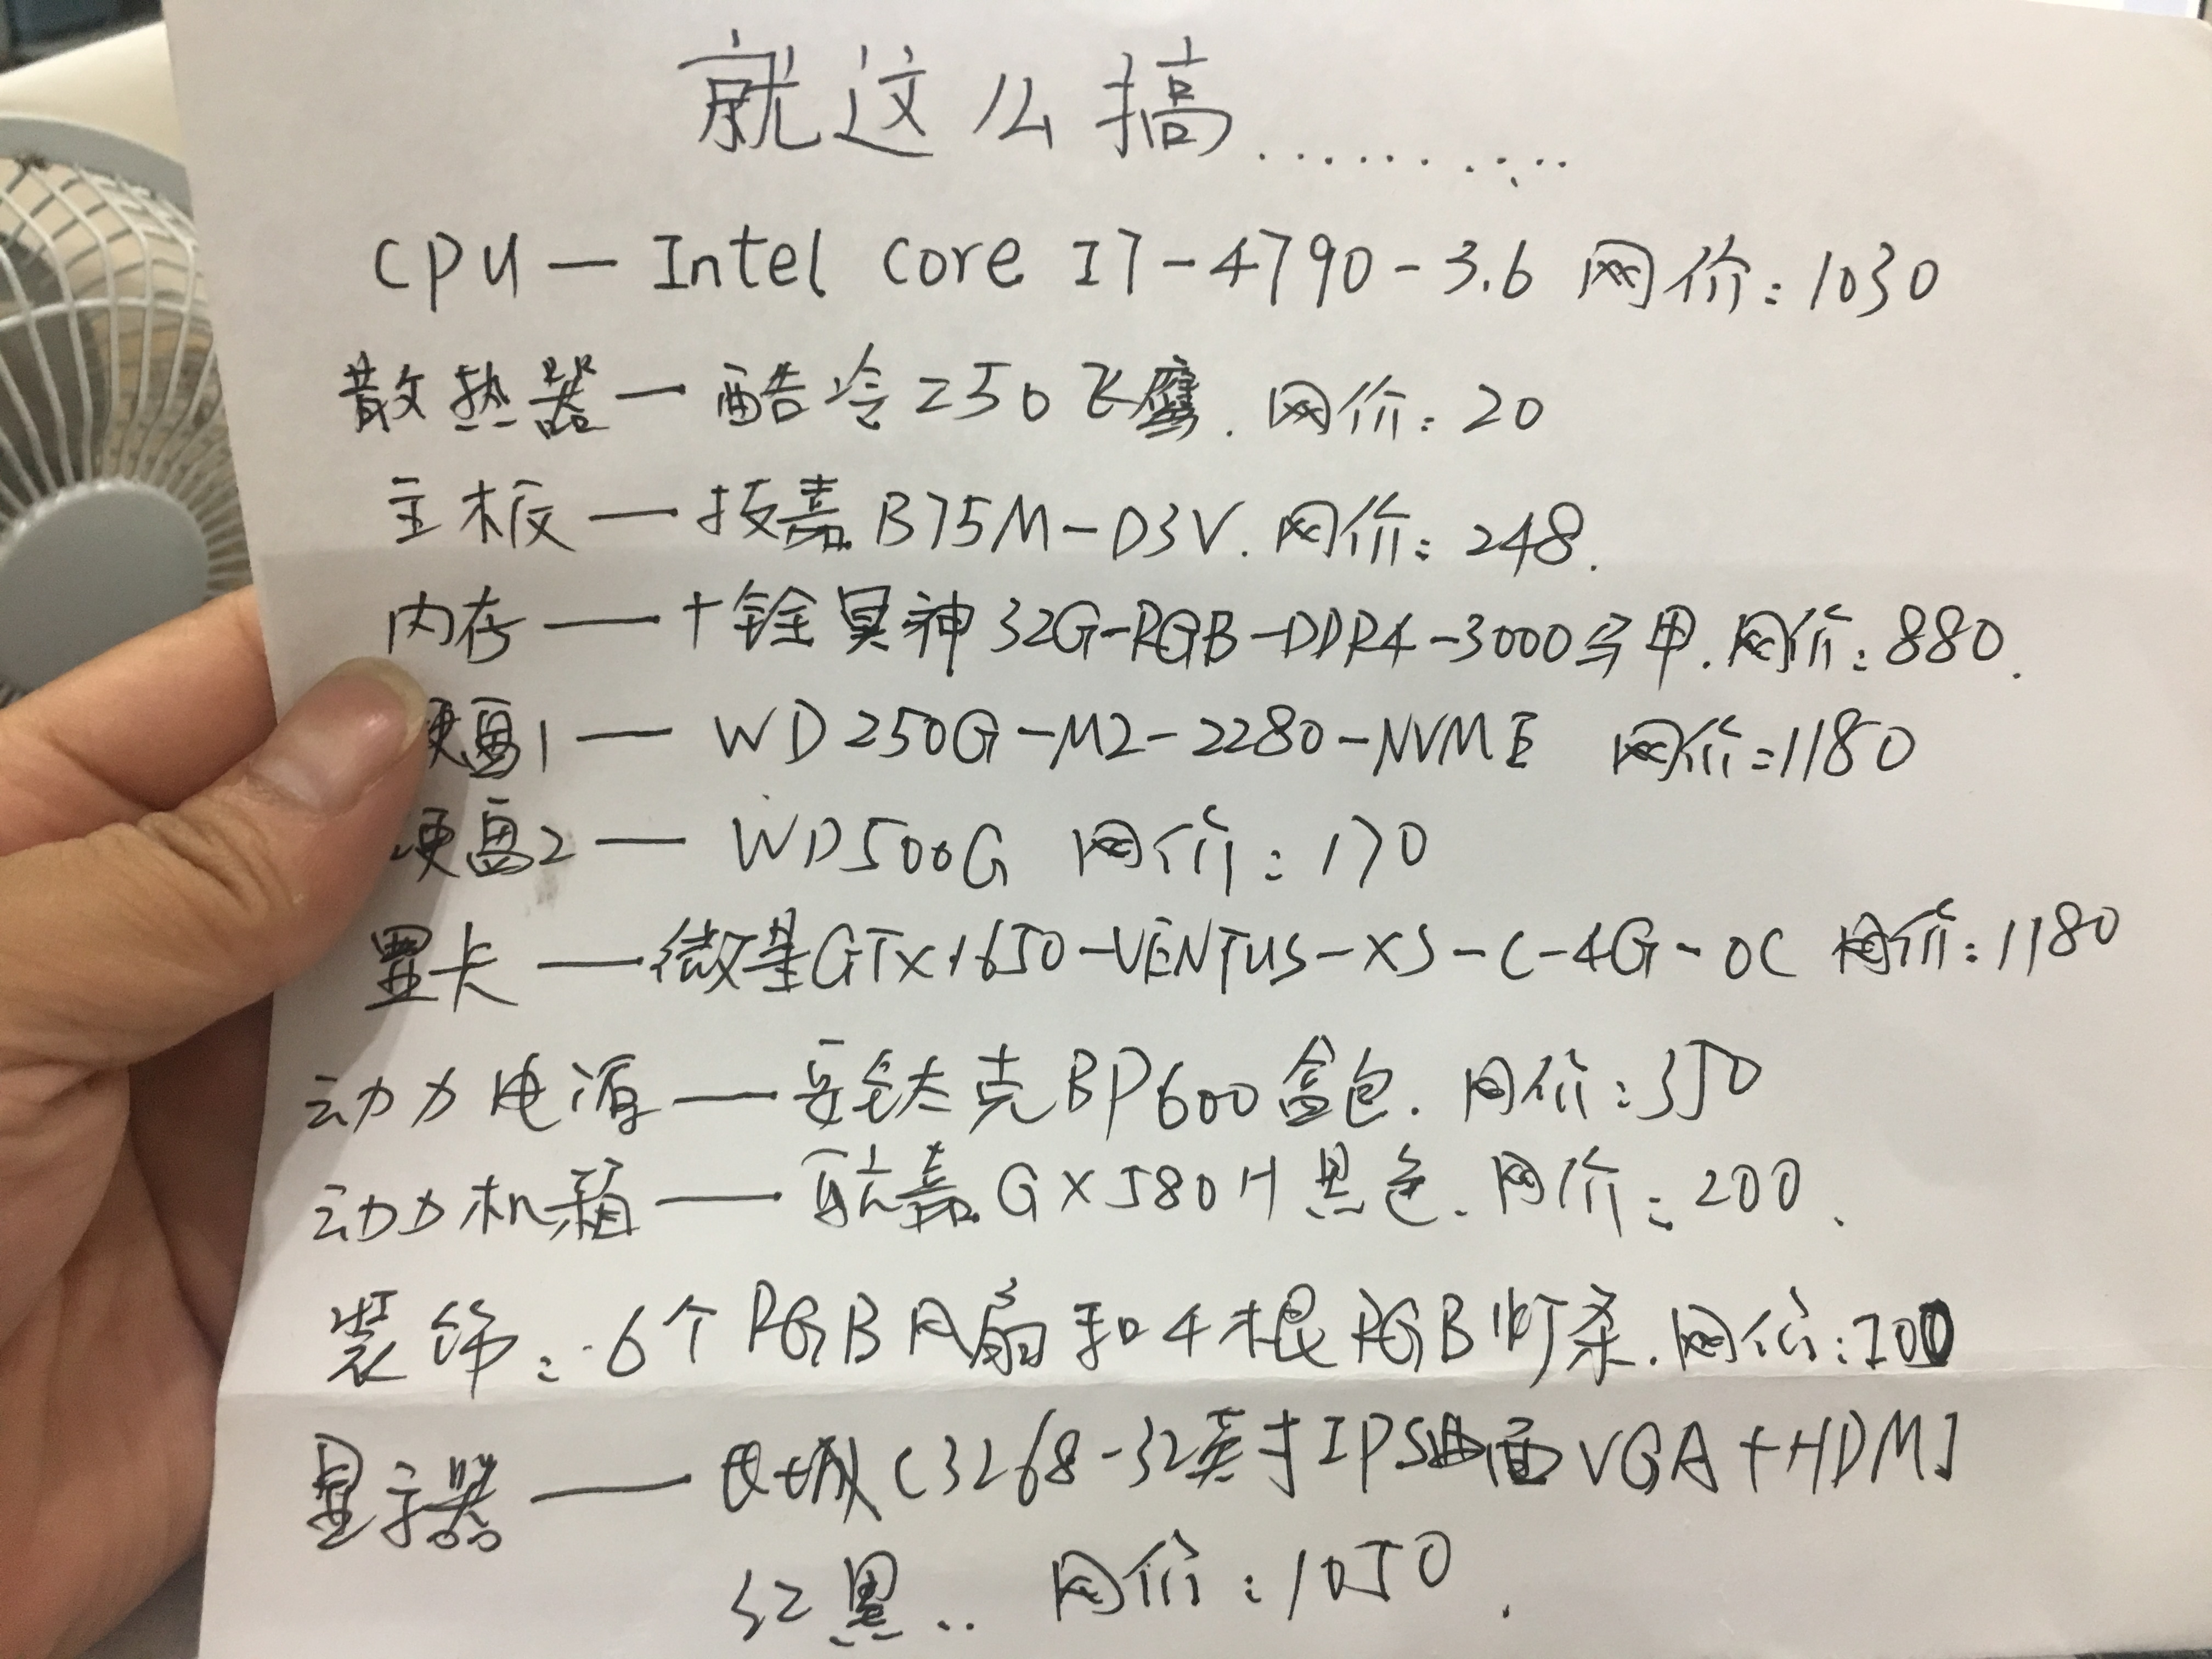 就这么搞..........
CPU — Intel Core I7-4790-3.6 网价:1030
散热器 — 酷冷Z50飞鹰. 网价:20
主板 — 技嘉B75M-D3V. 网价:248.
内存 — 十铨冥神32G-RGB-DDR4-3000马甲. 网价:880.
硬盘1 — WD250G-M2-2280-NVME 网价:1180
硬盘2 — WD500G 网价:170
显卡 — 微星GTX1650-VENTUS-XS-C-4G-OC 网价:1180
动力电源 — 安钛克BP600盒包. 网价:350
动力机箱 — 航嘉GX580H黑色. 网价:200.
装饰:6个RGB风扇和4根RGB灯条. 网价:
显示器 — 长城C3268-32英寸IPS曲面VGA+HDMI
红黑.. 网价:1050.